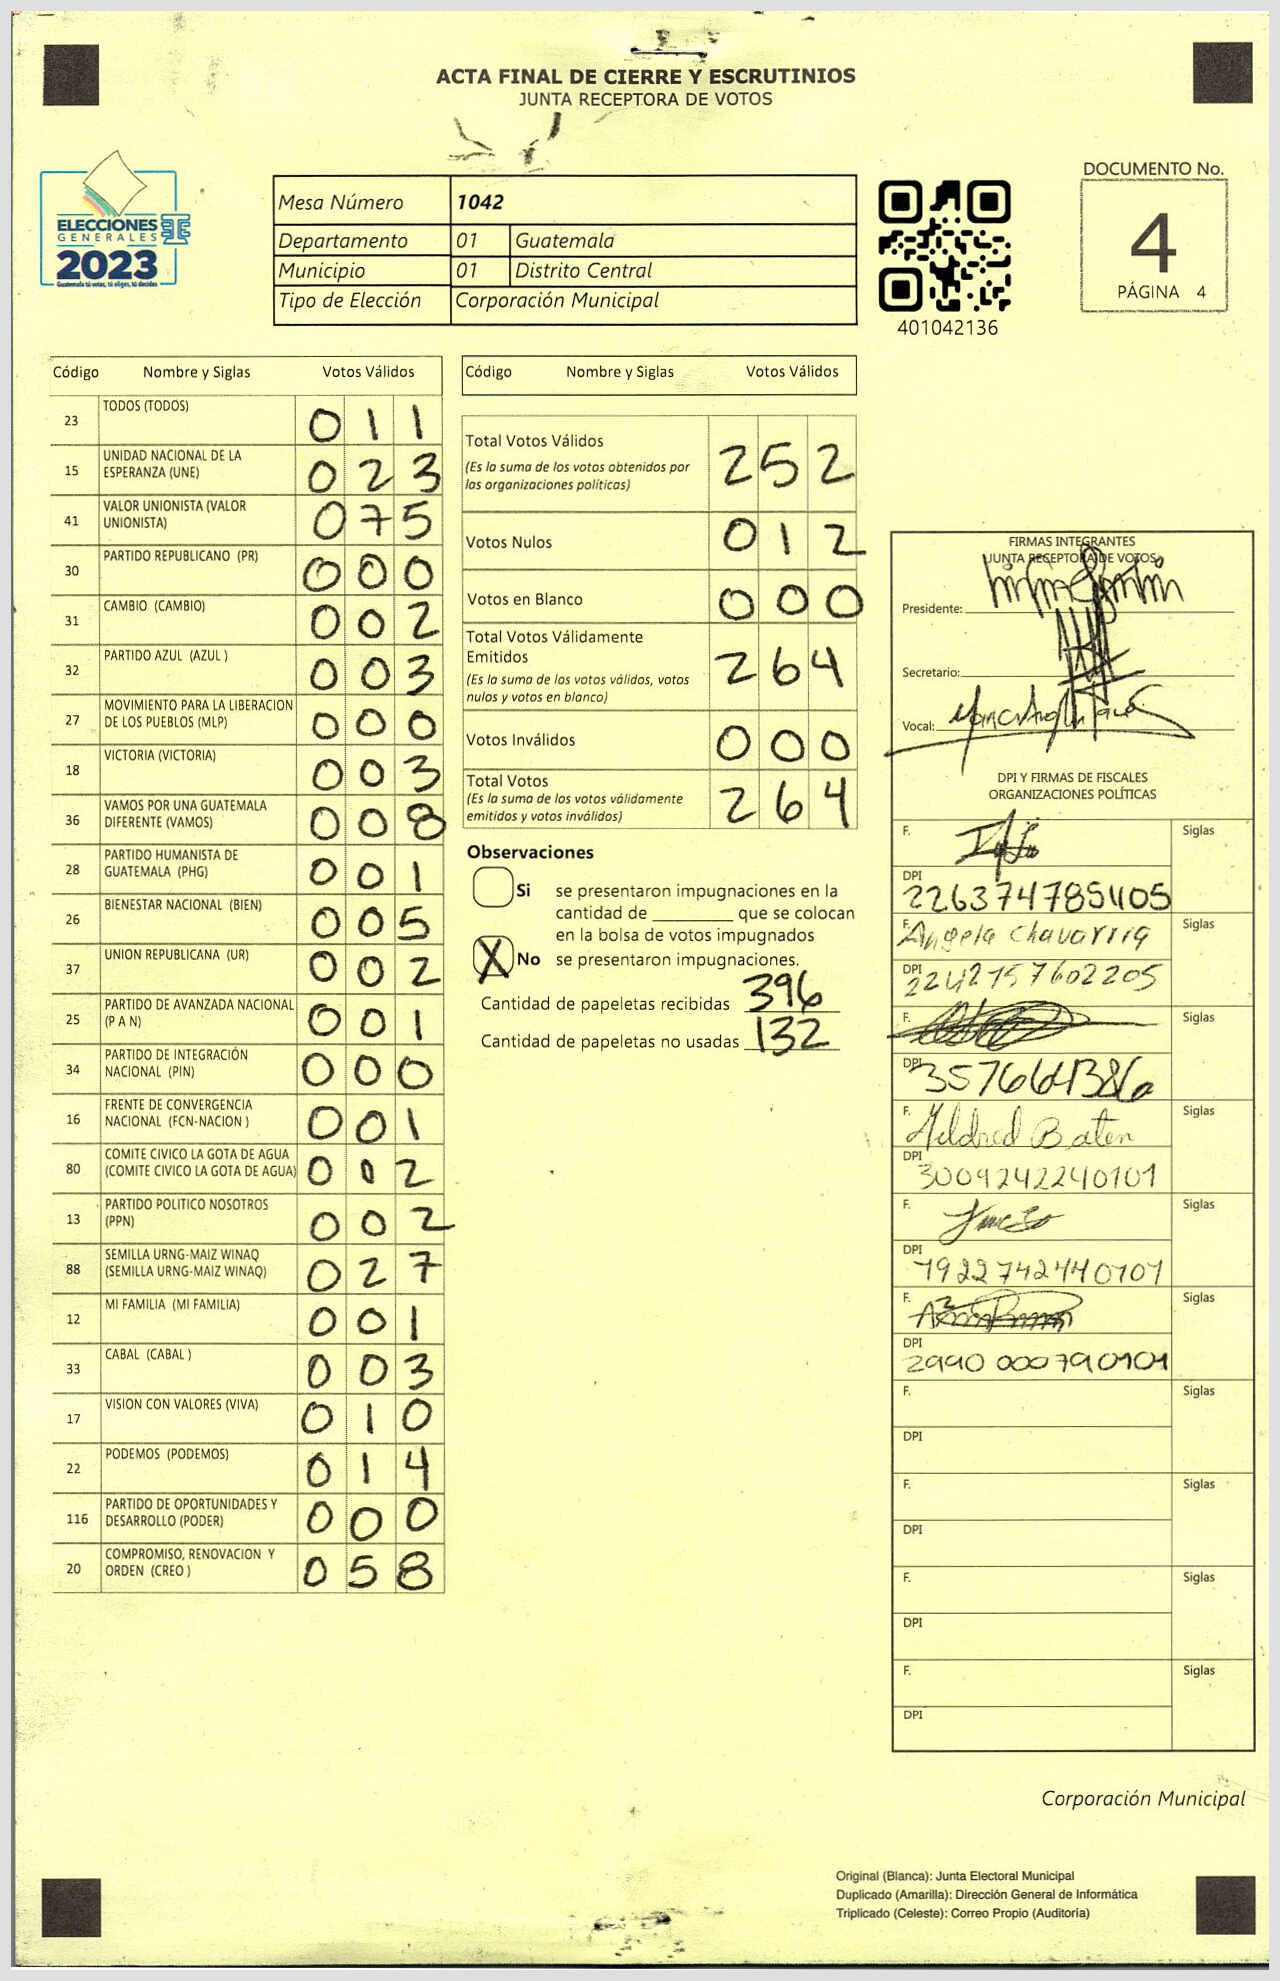 ACTA FINAL DE CIERRE Y ESCRUTINIOS
JUNTA RECEPTORA DE VOTOS
ELECCIONES
GENERALES
2023
Guatemala tú votas, tú eliges, tú decides
Mesa Número 1042
Departamento 01 Guatemala
Municipio 01 Distrito Central
Tipo de Elección Corporación Municipal
401042136
DOCUMENTO No.
4
PÁGINA 4
Código Nombre y Siglas Votos Válidos
23 TODOS (TODOS) 011
15 UNIDAD NACIONAL DE LA
ESPERANZA (UNE) 023
41 VALOR UNIONISTA (VALOR
UNIONISTA) 075
30 PARTIDO REPUBLICANO (PR) 000
31 CAMBIO (CAMBIO) 002
32 PARTIDO AZUL (AZUL ) 003
27 MOVIMIENTO PARA LA LIBERACION
DE LOS PUEBLOS (MLP) 000
18 VICTORIA (VICTORIA) 003
36 VAMOS POR UNA GUATEMALA
DIFERENTE (VAMOS) 008
28 PARTIDO HUMANISTA DE
GUATEMALA (PHG) 001
26 BIENESTAR NACIONAL (BIEN) 005
37 UNION REPUBLICANA (UR) 002
25 PARTIDO DE AVANZADA NACIONAL
(P A N) 001
34 PARTIDO DE INTEGRACIÓN
NACIONAL (PIN) 000
16 FRENTE DE CONVERGENCIA
NACIONAL (FCN-NACION ) 001
80 COMITE CIVICO LA GOTA DE AGUA
(COMITE CIVICO LA GOTA DE AGUA) 002
13 PARTIDO POLITICO NOSOTROS
(PPN) 002
88 SEMILLA URNG-MAIZ WINAQ
(SEMILLA URNG-MAIZ WINAQ) 027
12 MI FAMILIA (MI FAMILIA) 001
33 CABAL (CABAL ) 003
17 VISION CON VALORES (VIVA) 010
22 PODEMOS (PODEMOS) 014
116 PARTIDO DE OPORTUNIDADES Y
DESARROLLO (PODER) 000
20 COMPROMISO, RENOVACION Y
ORDEN (CREO ) 058
Código Nombre y Siglas Votos Válidos
Total Votos Válidos 252
(Es la suma de los votos obtenidos por
las organizaciones políticas)
Votos Nulos 012
Votos en Blanco 000
Total Votos Válidamente
Emitidos 264
(Es la suma de los votos válidos, votos
nulos y votos en blanco)
Votos Inválidos 000
Total Votos 264
(Es la suma de los votos válidamente
emitidos y votos inválidos)
Observaciones
Si se presentaron impugnaciones en la
cantidad de ________ que se colocan
en la bolsa de votos impugnados
X No se presentaron impugnaciones.
Cantidad de papeletas recibidas 396
Cantidad de papeletas no usadas 132
FIRMAS INTEGRANTES
JUNTA RECEPTORA DE VOTOS
Presidente:
Secretario:
Vocal:
DPI Y FIRMAS DE FISCALES
ORGANIZACIONES POLÍTICAS
F. Siglas
DPI
F. Angela Chavarria Siglas
DPI 2242157602205
F. Siglas
DPI
F. Mildred Baten Siglas
DPI 3009242240101
F. Siglas
DPI 1922742440101
F. Siglas
DPI 2990 000790101
F. Siglas
DPI
F. Siglas
DPI
F. Siglas
DPI
F. Siglas
DPI
Corporación Municipal
Original (Blanca): Junta Electoral Municipal
Duplicado (Amarilla): Dirección General de Informática
Triplicado (Celeste): Correo Propio (Auditoría)